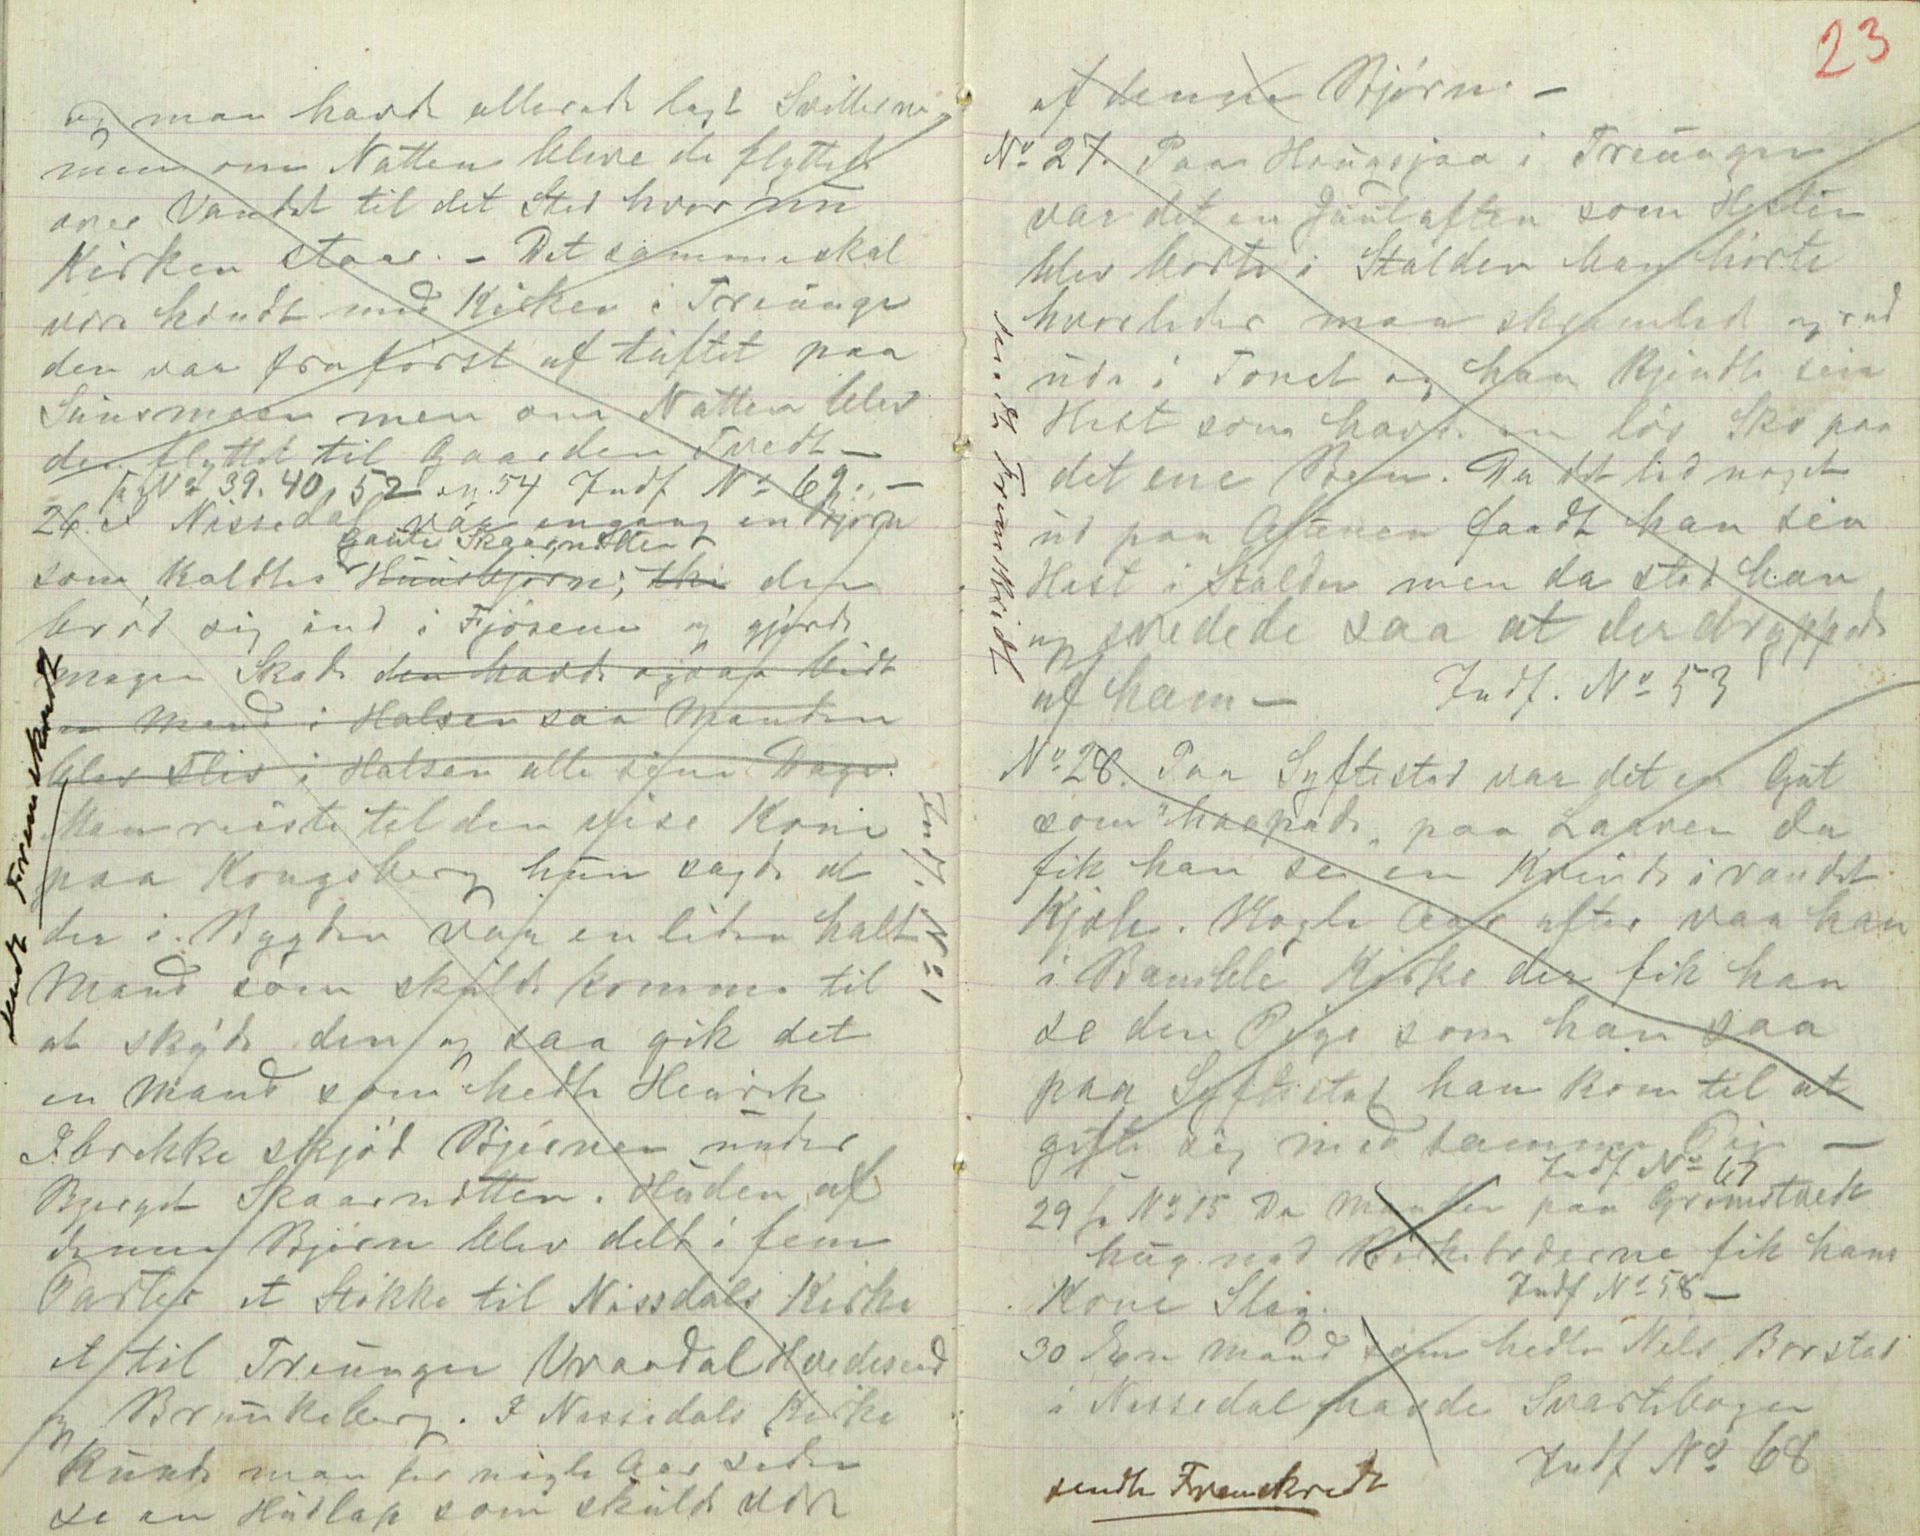 og man havde allerede lagt Svillerne
men om Natten bleve de flyttede
over Vandet til det Sted hvor nu
Kirken staar. – Det samme skal
være hændt med Kirken i Treungen
den var fra først af tuftet paa
men om Natten blev
den flyttet til Gaarden Tvedt –
No 39. 40, 52 og 54 Indf No 69. –
26. I Nissedal var engang en Bjørn
Gaute Skaarnatten
som kaldtes Huusbjørn; den
brød sig ind i Fjøsene og gjorde
megen Skade den havde ogsaa bidt
en Mand i Halsen saa Manden
blev i Halsen alle sine Dage.
Man reiste til den vise Kone
paa Kongsberg hun sagde at
der i Bygden var en liden halt
Mand som skulde komme til
at skyde den og saa gik det
en Mand som hedte Henrik
skjød Bjørnen under
Bjerget Skaarnatten. Huden af
denne Bjørn blev delt i fem
Parter et Stikke til Nissdals Kirke
et til Treungen Vraadal Hvedesed
og Brunkeberg. I Nissedals Kirke
kunde man for nogle Aar siden
se en Hudlap som skulde være
sendt Fremskridt
Indf. No 1
23
af denne Bjørn. –
No 27. Paa Haugsjaa i Treungen
var det en Juulaften som Hesten
blev borte i Stalden han hørte
hvorledes man skramlede og red
ude i Tonet og han kjendte sin
Hest som havde en løs Sko paa
det ene Ben. Da det led noget
ud paa Aftenen faadt han sin
Hest i Stalden men da stod han
og svedede saa at der dryppede
af ham – Indf. No 53
sendt Fremskridt
No 28. Paa Syftestad var det en Gut
som "haapade" paa Laaven da
fik han se en Kvinde i
Kjole. Nogle Aar efter var han
i Bamble Kirke der fik han
se den Pige som han saa
paa Syftestad han kom til at
gifte sig med samme Pige –
Indf No 67
29 No 15 Da Manden paa Grimstvedt
hug ned fik hans
Kone Slag. Indf No 58 –
30 Een Mand som hedte Nils Borstad
i Nissedal havde Svarteboger
Indf No 68
sendt Fremskredt